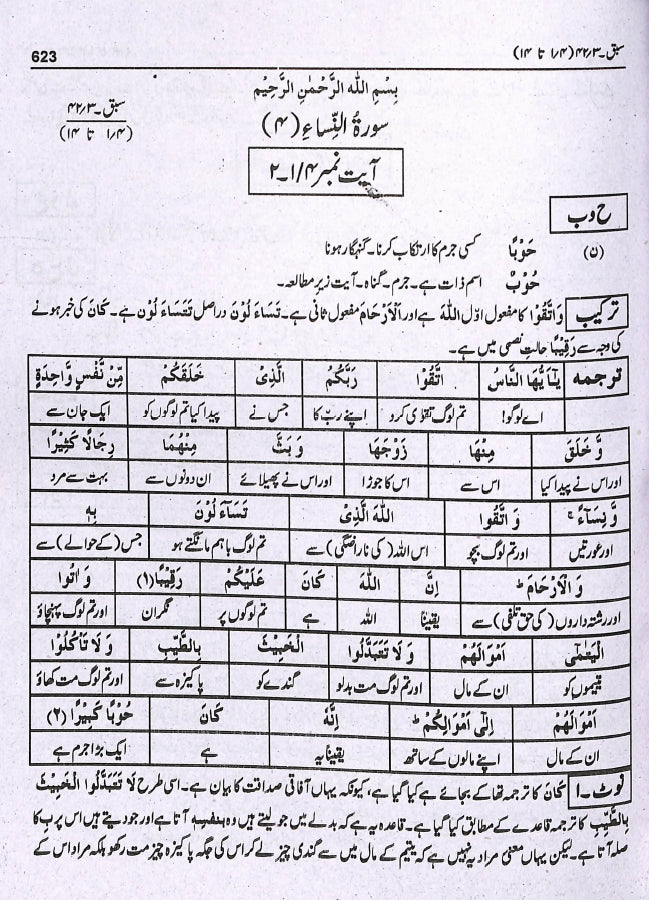 سبق۔۴۲/۳ (۱/۴ تا ۱۴) 623
بِسْمِ اللّٰهِ الرَّحْمٰنِ الرَّحِيْمِ
سبق۔۴۲/۳
(۱/۴ تا ۱۴)
سورۃ النِّساءِ (۴)
آیت نمبر ۱/۴۔۲
ح و ب
(ن) حَوْبًا کسی جرم کا ارتکاب کرنا۔ گنہگار ہونا
حُوْبٌ اسم ذات ہے۔ جرم۔ گناہ۔ آیت زیر مطالعہ۔
ترکیب وَاتَّقُوْا کا مفعول اوّل اللّٰهَ ہے اور اَلْاَرْحَامَ مفعول ثانی ہے۔ تَسَآءَ لُوْنَ دراصل تَتَسَاءَ لُوْنَ ہے۔ كَانَ کی خبر ہونے
کی وجہ سے رَقِيْبًا حالتِ نصبی میں ہے۔
ترجمہ يٰٓاَيُّهَا النَّاسُ اتَّقُوْا رَبَّكُمُ الَّذِيْ خَلَقَكُمْ مِّنْ نَّفْسٍ وَّاحِدَةٍ
اے لوگو! تم لوگ تقویٰ کرو اپنے ربّ کا جس نے پیدا کیا تم لوگوں کو ایک جان سے
وَّ خَلَقَ مِنْهَا زَوْجَهَا وَ بَثَّ مِنْهُمَا رِجَالًا كَثِيْرًا
اور اس نے پیدا کیا اس سے اس کا جوڑا اور اس نے پھیلائے ان دونوں سے بہت سے مرد
وَّ نِسَآءً ۚ وَ اتَّقُوا اللّٰهَ الَّذِيْ تَسَآءَ لُوْنَ بِهٖ
اور عورتیں اور تم لوگ بچو اس اللہ (کی ناراضگی) سے تم لوگ باہم مانگتے ہو جس (کے حوالے) سے
وَ الْاَرْحَامَ ؕ اِنَّ اللّٰهَ كَانَ عَلَيْكُمْ رَقِيْبًا (۱) وَ اٰتُوا
اور رشتہ داروں (کی حق تلفی) سے یقیناً اللہ ہے تم لوگوں پر نگران اور تم لوگ پہنچاؤ
الْيَتٰمٰٓى اَمْوَالَهُمْ وَ لَا تَتَبَدَّلُوا الْخَبِيْثَ بِالطَّيِّبِ وَ لَا تَاْكُلُوْٓا
یتیموں کو ان کے مال اور تم لوگ مت بدلو گندے کو پاکیزہ سے اور تم لوگ مت کھاؤ
اَمْوَالَهُمْ اِلٰٓى اَمْوَالِكُمْ ؕ اِنَّهٗ كَانَ حُوْبًا كَبِيْرًا (۲)
ان کے مال اپنے مالوں کے ساتھ یقیناً یہ ہے ایک بڑا جرم ہے
نوٹ۔۱ كَانَ کا ترجمہ تھا کے بجائے ہے کیا گیا ہے، کیونکہ یہاں آفاقی صداقت کا بیان ہے۔ اسی طرح لَا تَتَبَدَّلُوا الْخَبِيْثَ
بِالطَّيِّبِ کا ترجمہ قاعدے کے مطابق کیا گیا ہے۔ قاعدہ یہ ہے کہ بدلے میں جو لیتے ہیں وہ بنفسہٖ آتا ہے اور جو دیتے ہیں اس پر بِ کا
صلہ آتا ہے۔ لیکن یہاں معنی مراد یہ نہیں ہے کہ یتیم کے مال میں سے گندی چیز لے کر اس کی جگہ پاکیزہ چیز مت رکھو بلکہ مراد اس کے